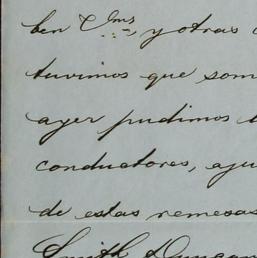 ben Vms, y otras
tuvimos que som
ayer pudimos
conductores, aju
de estas remesas
Smith Duncan